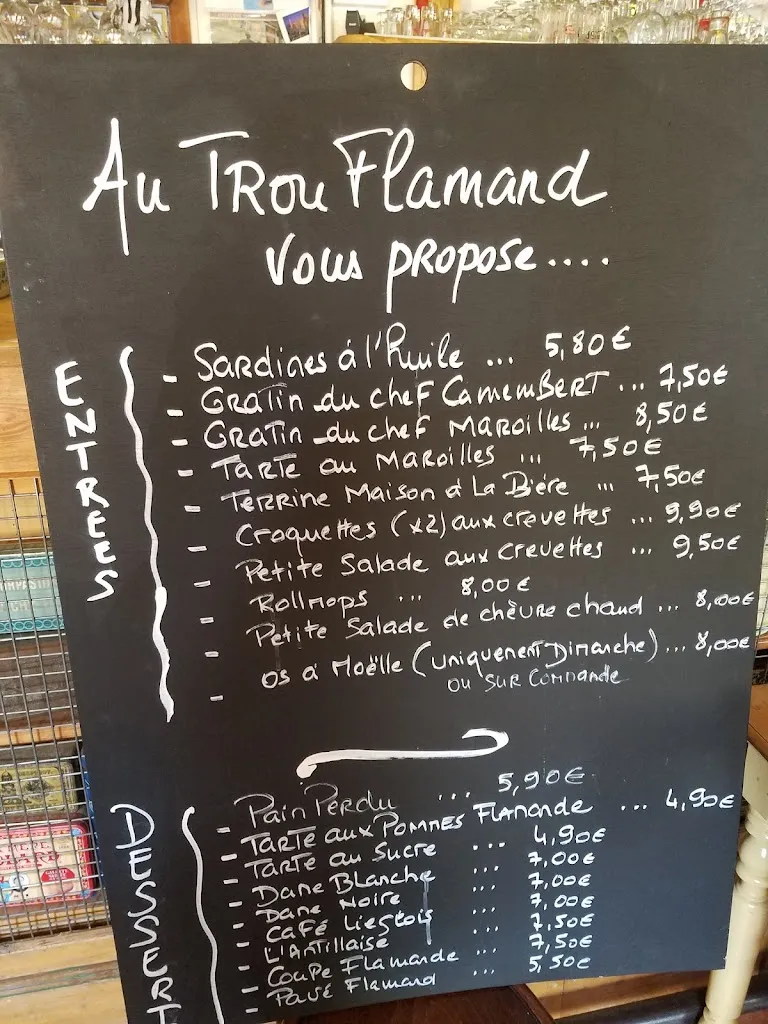 Au TRou Flamand
Vous propose....
ENTREES
- Sardines á l'huile ... 5,80€
- Gratin du chef Camembert ... 7,50€
- Gratin du chef Maroilles ... 8,50€
- Tarte au Maroilles ... 7,50€
- Terrine Maison à La Bière ... 7,50€
- Croquettes (x2) aux crevettes ... 9,90€
- Petite Salade aux Crevettes ... 9,50€
- Rollmops ... 8,00€
- Petite Salade de chèvre chaud ... 8,00€
- os à Moëlle (uniquement Dimanche) ... 8,00€
ou sur commande
DESSERT
- Pain Perdu ... 5,90€
- Tarte aux Pommes Flamande ... 4,90€
- Tarte au Sucre ... 4,90€
- Dame Blanche ... 7,00€
- Dame Noire ... 7,00€
- Café Liégeois ... 7,00€
- L'Antillaise ... 7,50€
- Coupe Flamande ... 7,50€
- Pavé Flamand ... 5,50€